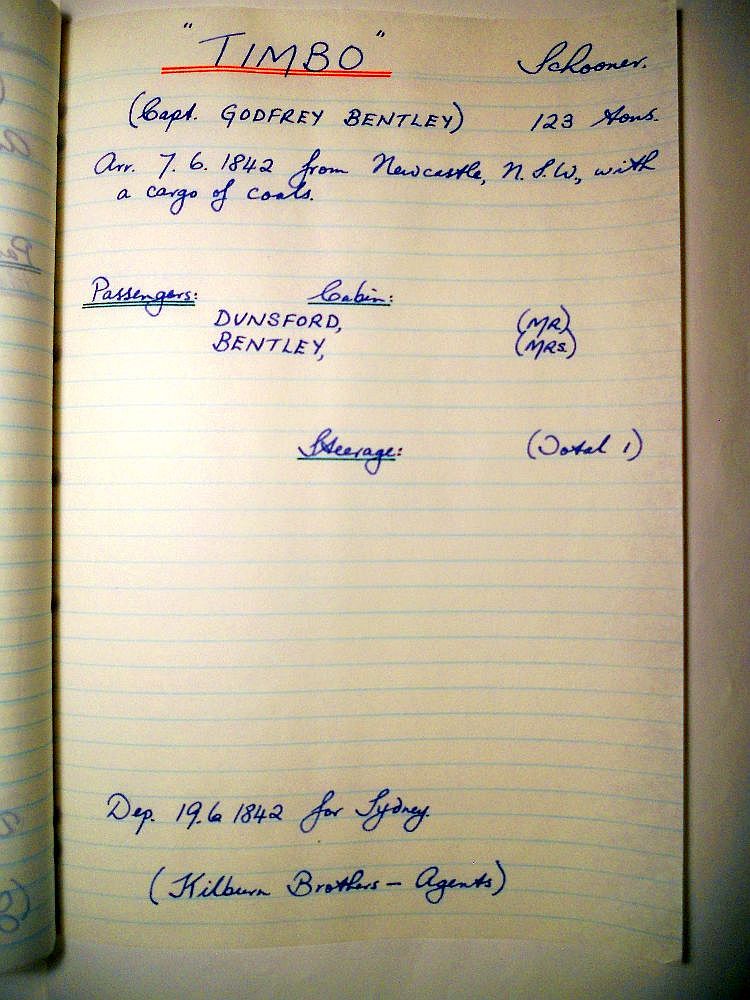 "TIMBO" Schooner.
(Capt. GODFREY BENTLEY) 123 tons.
Arr. 7.6.1842 from Newcastle, N.S.W., with
a cargo of coals.
Passengers: Cabin:
DUNSFORD, (MR)
BENTLEY, (MRS.)
Steerage: (Total 1)
Dep. 19.6.1842 for Sydney.
(Kilburn Brothers – Agents)